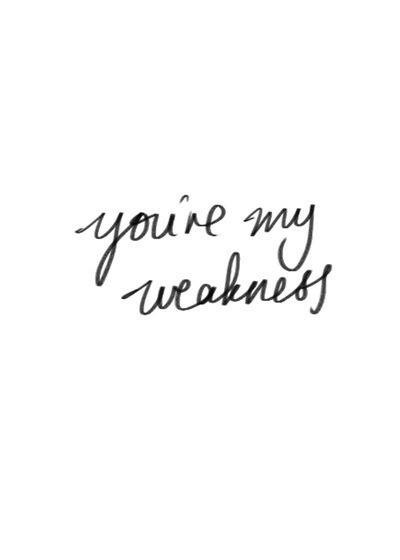 you're my
weakness